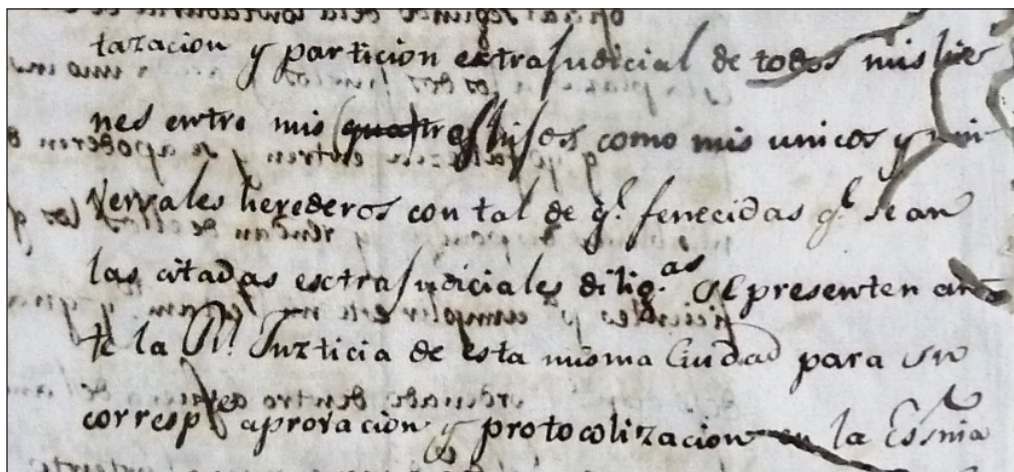 tazacion y particion extrajudicial de todos mis bie
nes entre mis hijos como mis unicos y uni
versales herederos con tal de q.e fenecidas q.e sean
las citadas esctrajudiciales dilig.as se presenten an
te la Rl. Justicia de esta misma Ciudad para su
corresp.te aprovacion y protocolizacion en la Essnia